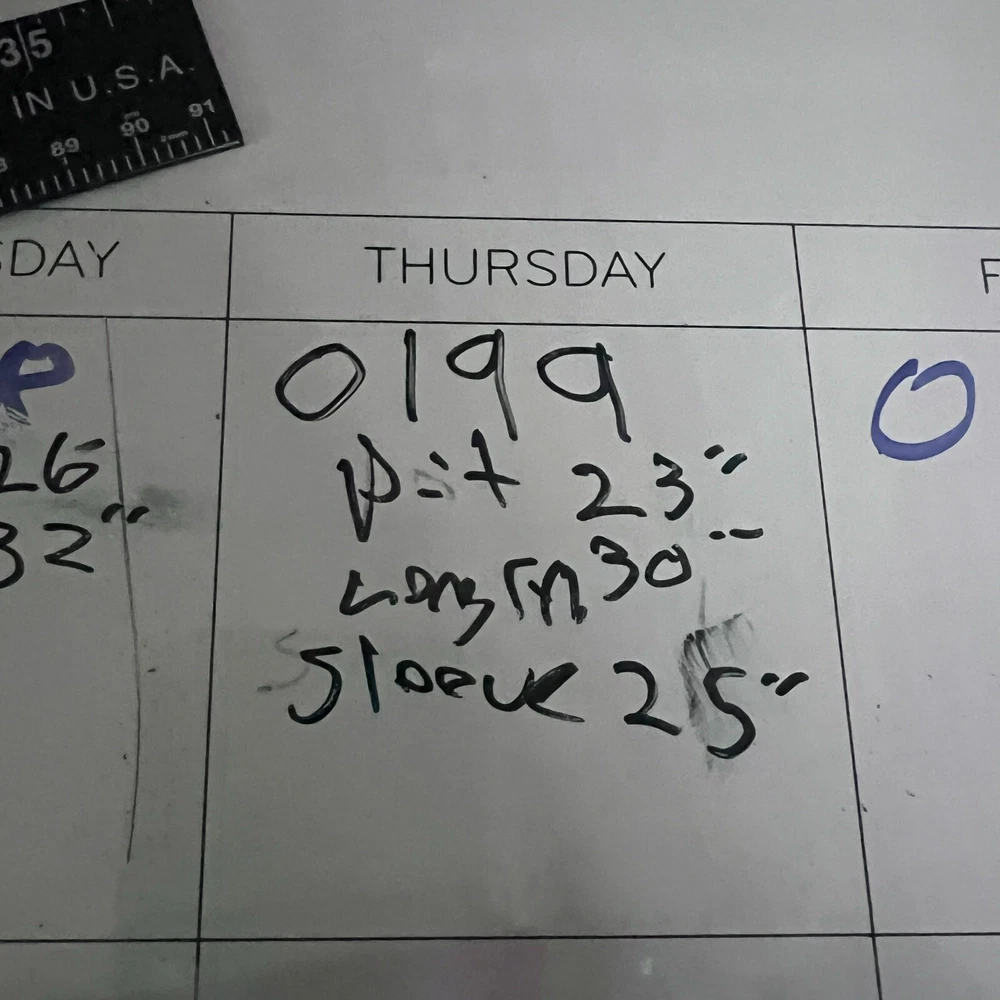 35
IN U.S.A.
89 90 91
SDAY THURSDAY F
0199
O
26
32"
Pit 23"
Length 30"
Sleeve 25"